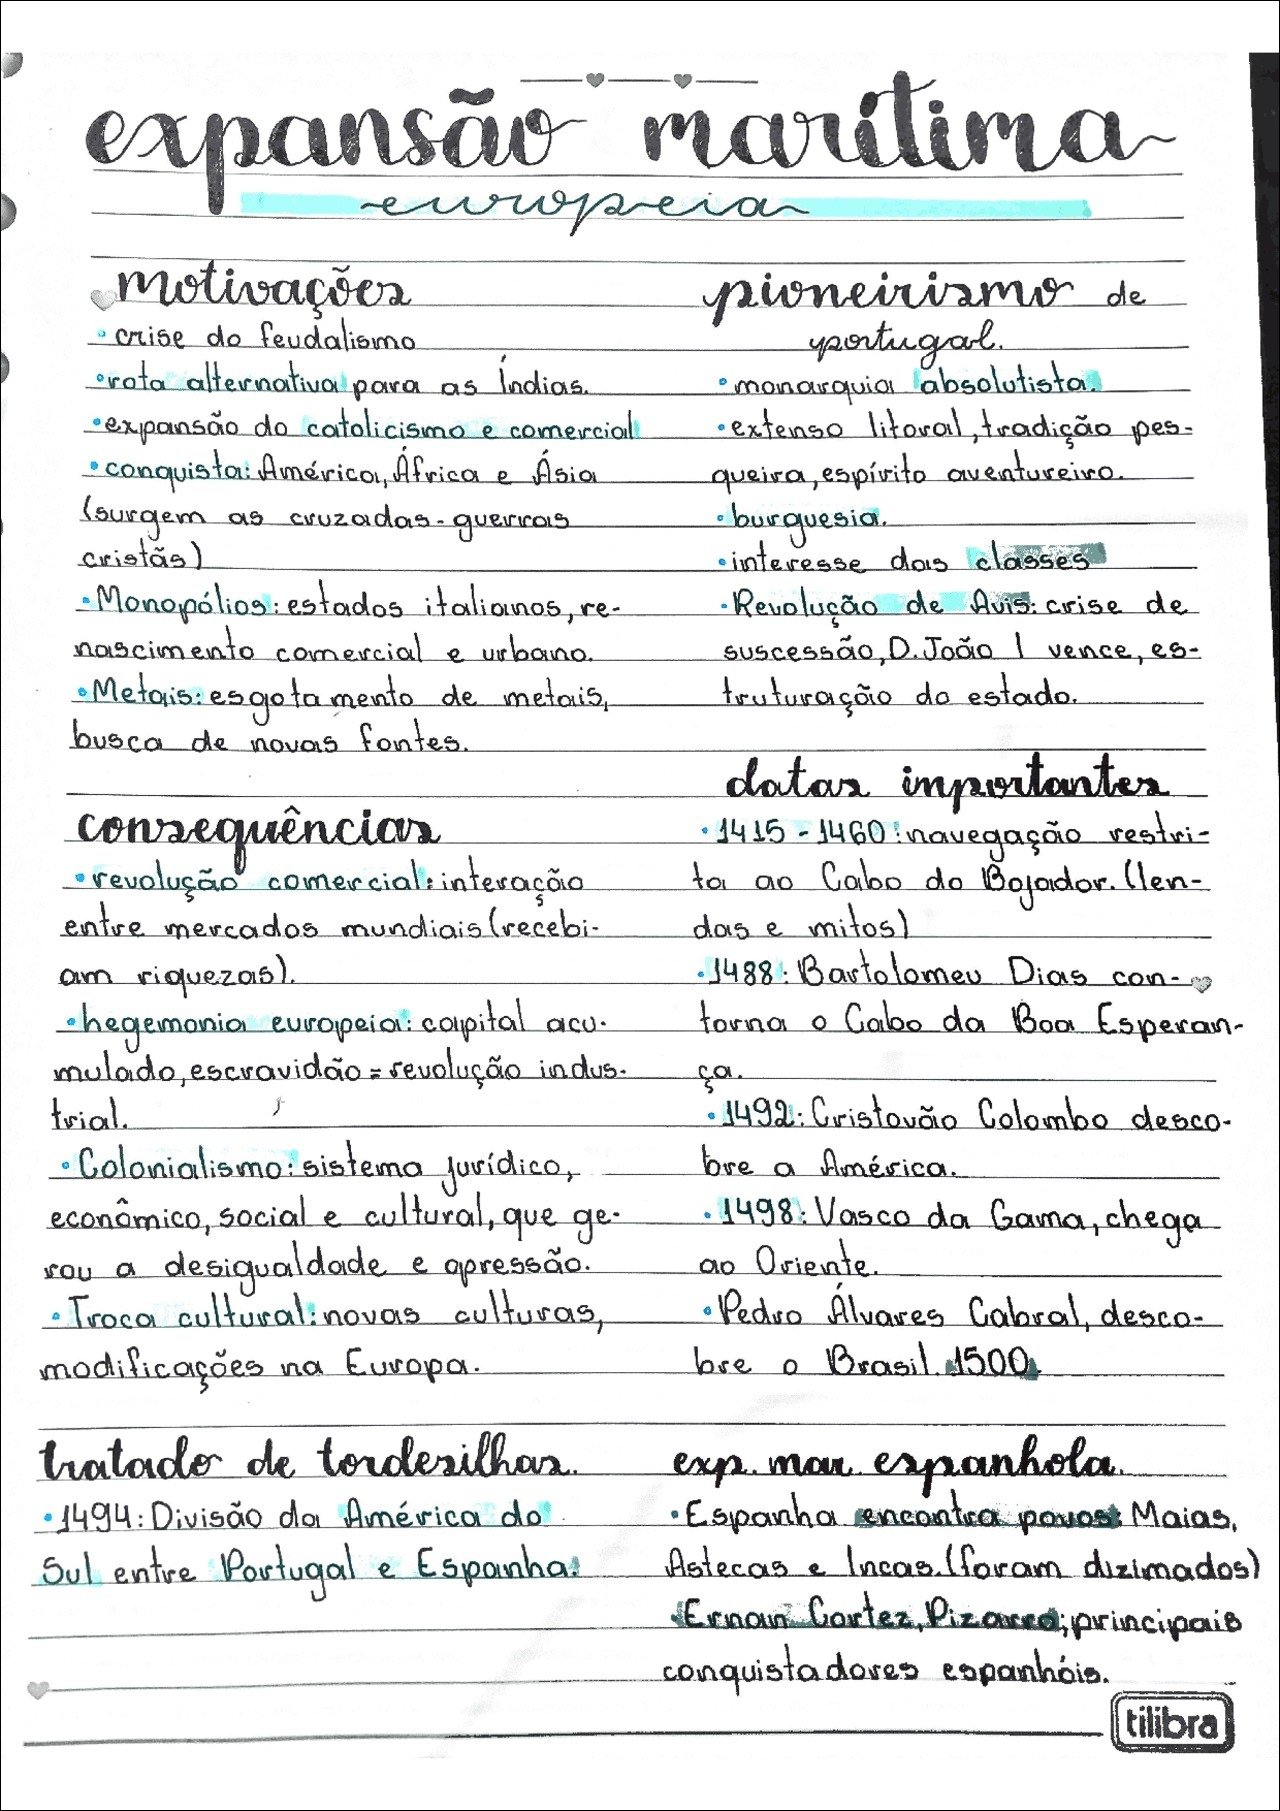 expansão marítima
europeia
motivações
• crise do feudalismo
• rota alternativa para as Índias.
• expansão do catolicismo e comercial
• conquista: América, África e Ásia
(surgem as cruzadas - guerras
cristãs)
• Monopólios: estados italianos, re-
nascimento comercial e urbano.
• Metais: esgotamento de metais,
busca de novas fontes.
consequências
• revolução comercial: interação
entre mercados mundiais (recebi-
am riquezas).
• hegemonia europeia: capital acu-
mulado, escravidão = revolução indus-
trial.
• Colonialismo: sistema jurídico,
econômico, social e cultural, que ge-
rou a desigualdade e opressão.
• Troca cultural: novas culturas,
modificações na Europa.
tratado de tordesilhas.
• 1494: Divisão da América do
Sul entre Portugal e Espanha.
pioneirismo de
portugal.
• monarquia absolutista.
• extenso litoral, tradição pes-
queira, espírito aventureiro.
• burguesia.
• interesse das classes
• Revolução de Avis: crise de
suscessão, D. João I vence, es-
truturação do estado.
datas importantes
• 1415 - 1460: navegação restri-
ta ao Cabo do Bojador. (len-
das e mitos)
• 1488: Bartolomeu Dias con-
torna o Cabo da Boa Esperan-
ça.
• 1492: Cristovão Colombo desco-
bre a América.
• 1498: Vasco da Gama, chega
ao Oriente.
• Pedro Álvares Cabral, desco-
bre o Brasil. 1500.
exp. mar. espanhola.
• Espanha encontra povos: Maias,
Astecas e Incas. (foram dizimados)
• Ernan Cortez, Pizarro; principais
conquistadores espanhóis.
tilibra